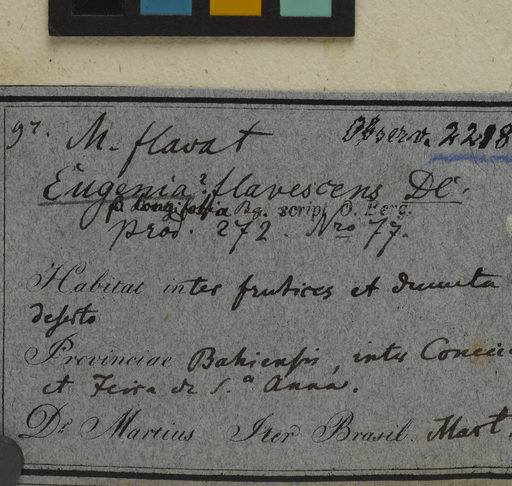 97. M. flavat Observ. 2218
Eugenia? flavescens DC.
β longifolia Bg. scrips. O. Berg.
prod. 272. Nro 77.
Habitat inter frutices et dumeta
deserto
Provinciae Bahiensis, inter Concei
et Feira de S.ª Anna.
Dr Martius Iter Brasil. Mart.